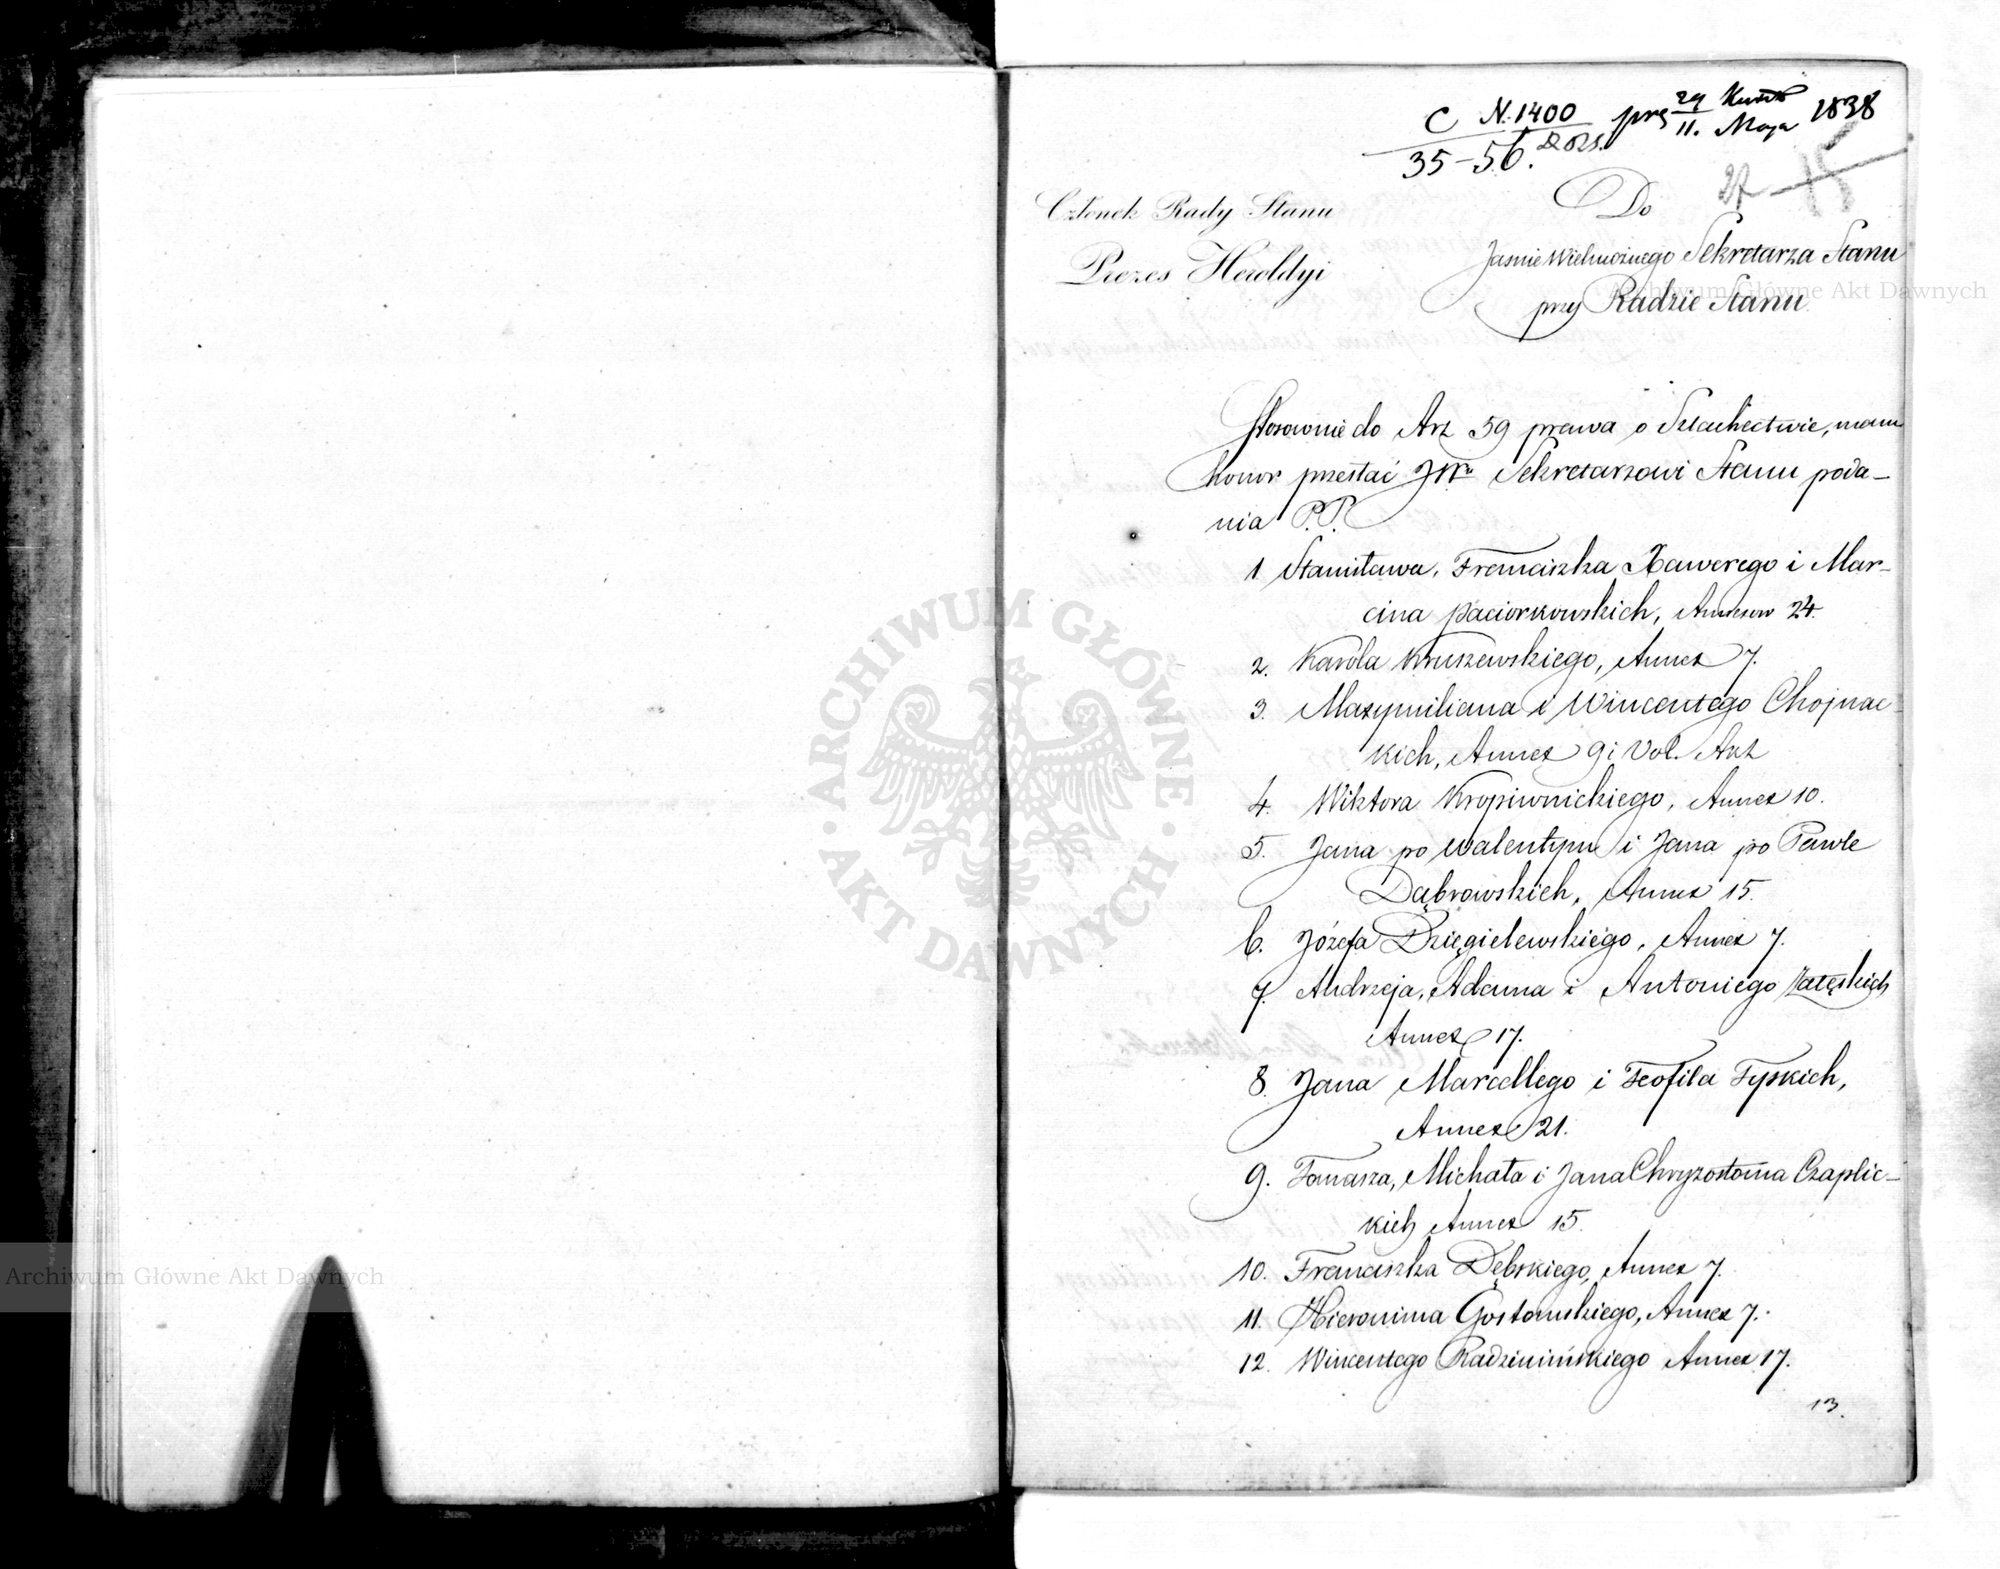 C N. 1400 prs 29 Kwiet 1838
35-56. 11. Maja
27 15
Członek Rady Stanu
Prezes Heroldyi
Do
Jaśnie Wielmożnego Sekretarza Stanu
przy Radzie Stanu.
Stosownie do Art 59 prawa o Szlachectwie, mam
honor przesłać JWu Sekretarzowi Stanu poda-
nia P.P.
1 Stanisława, Franciszka Xawerego i Mar-
cina Paciorkowskich, Annexow 24.
2. Karola Kruszewskiego, Annex 7.
3. Maxymiliana i Wincentego Chojnac-
kich, Annex 9 i Vol. Akt
4. Wiktora Kropiwnickiego, Annex 10.
5. Jana po Walentym i Jana po Pawle
Dąbrowskich, Annex 15.
6. Józefa Dzięgielewskiego, Annex 7.
7. Andrzeja, Adama i Antoniego Załęskich
Annex 17.
8. Jana Marcellego i Teofila Tyskich,
Annex 21.
9. Tomasza, Michała i Jana Chryzostoma Czaplic-
kich Annex 15.
10. Franciszka Dębskiego, Annex 7.
11. Hieronima Gostomskiego, Annex 7.
12. Wincentego Radzimińskiego Annex 17.
13.
ARCHIWUM GŁÓWNE
AKT DAWNYCH
Archiwum Główne Akt Dawnych
Archiwum Główne Akt Dawnych